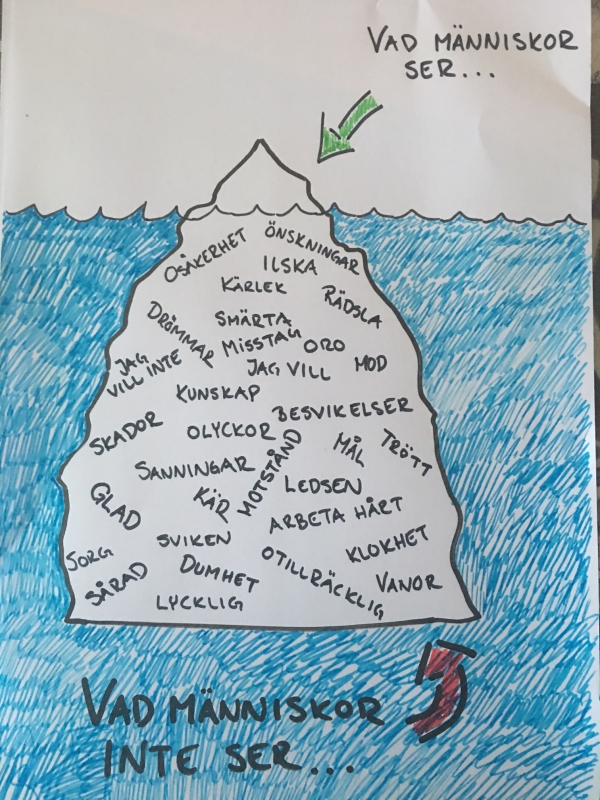 VAD MÄNNISKOR
SER...
OSÄKERHET
ÖNSKNINGAR
ILSKA
KÄRLEK
RÄDSLA
DRÖMMAR
SMÄRTA
MISSTAG
ORO
JAG
VILL INTE
JAG VILL
MOD
KUNSKAP
BESVIKELSER
SKADOR
OLYCKOR
MÅL
TRÖTT
MOTSTÅND
SANNINGAR
LEDSEN
GLAD
KÄR
ARBETA HÅRT
SVIKEN
KLOKHET
SORG
DUMHET
OTILLRÄCKLIG
VANOR
SÅRAD
LYCKLIG
VAD MÄNNISKOR
INTE SER...